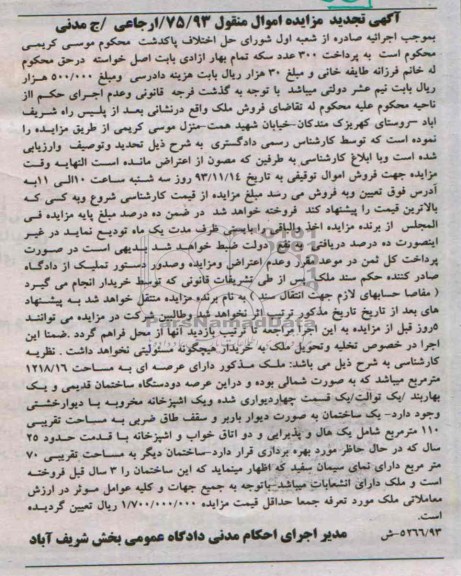 آگهی تجدید مزایده اموال منقول ۷۵/۹۳/ارجاعی /ج مدنی
بموجب اجرائیه صادره از شعبه اول شورای حل اختلاف پاکدشت محکوم موسی کریمی
محکوم است به پرداخت ۳۰۰ عدد سکه تمام بهار ازادی بابت اصل خواسته درحق محکوم
له خانم فرزانه طایفه خانی و مبلغ ۳۰ هزار ریال بابت هزینه دادرسی ومبلغ ۵۰۰/۰۰۰ هزار
ریال بابت نیم عشر دولتی میباشد با توجه به گذشت فرجه قانونی وعدم اجرای حکم ااز
ناحیه محکوم علیه محکوم له تقاضای فروش ملک واقع درنشانی بعد از پلیس راه شریف
اباد –روستای کهریزک مندکان-خیابان شهید همت-منزل موسی کریمی از طریق مزایده را
نموده است که توسط کارشناس رسمی دادگستری به شرح ذیل تحدید وتوصیف وارزیابی
شده است وبا ابلاغ کارشناسی به طرفین که مصون از اعتراض مانده است النهایه وقت
مزایده جهت فروش اموال توقیفی به تاریخ ۹۳/۱۱/۱۴ روز سه شنبه ساعت ۱۰الی ۱۱به
آدرس فوق تعیین وبه فروش می رسد مبلغ مزایده از قیمت کارشناسی شروع وبه کسی که
بالاترین قیمت را پیشنهاد کند فروخته خواهد شد در ضمن ده درصد مبلغ پایه مزایده فی
المجلس از برنده مزایده اخذ والباقی را بایستی ظرف مدت یک ماه تودیع نماید در غیر
اینصورت ده درصد دریافتی به نفع دولت ضبط خواهد شد بدیهی است در صورت
پرداخت کل ثمن در موعد مقرر وعدم اعتراض ومزایده وصدور دستور تملیک از دادگاه
صادر کننده حکم سند ملک پس از طی تشریفات قانونی که توسط خریدار انجام می گیرد
( مفاصا حسابهای لازم جهت انتقال سند ) به نام برنده مزایده منتقل خواهد شد به پیشنهاد
های بعد از تاریخ تاریخ مذکور ترتیب اثر نخواهد شد وطالبین شرکت در مزایده می توانند
۵روز قبل از مزایده به این اجرا مراجعه تا ترتیب بازدید آنها از محل فراهم گردد .ضمنا این
اجرا در خصوص تخلیه وتحویل ملک به خریدار هیچگونه مسئولیتی نخواهد داشت . نظریه
کارشناسی به شرح ذیل می باشد: ملک مذکور دارای عرصه ای به مساحت ۱۲۱۸/۱۶
مترمربع میباشد که به صورت شمالی بوده و دراین عرصه دودستگاه ساختمان قدیمی و یک
بهاربند /یک توالت/یک قسمت چهاردیواری شده ویک اشپزخانه مخروبه با دیوارخشتی
وجود دارد- یک ساختمان به صورت دیوار باربر و سقف طاق ضربی به مساحت تقریبی
۱۱۰ مترمربع شامل یک هال و پذیرایی و دو اتاق خواب و اشپزخانه با قدمت حدود ۲۵
سال که در حال حاظر مورد بهره برداری قرار دارد-ساختمان دیگر به مساحت تقریبی ۷۰
متر مربع دارای نمای سیمان سفید که اظهار مینماید که این ساختمان را ۳ سال قبل فروخته
است و ملک دارای انشعابات میباشد باتوجه به جمیع جهات و کلیه عوامل موثر در ارزش
معاملاتی ملک مورد تعرفه جمعا حداقل قیمت مزایده ۱/۷۰۰/۰۰۰/۰۰۰ ریال تعیین گردیده
است.
۵۲۶۶/۹۳–ش مدیر اجرای احکام مدنی دادگاه عمومی بخش شریف آباد
ParsNamadData